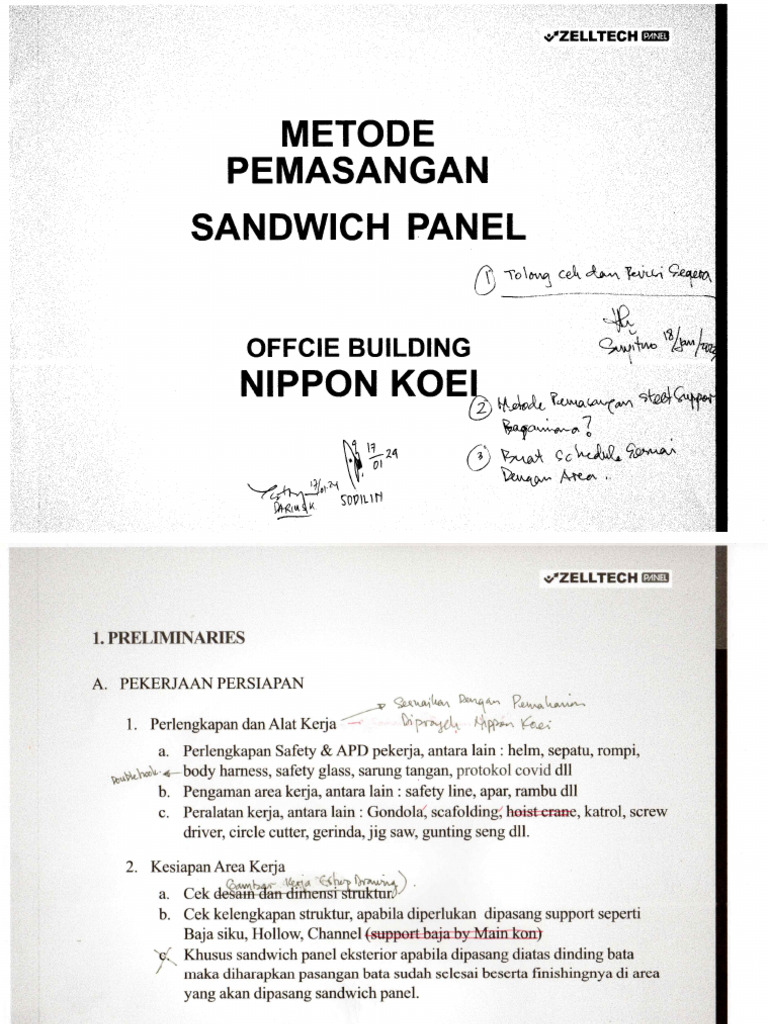 ZELLTECH PANEL
METODE
PEMASANGAN
SANDWICH PANEL
① Tolong cek dan Revisi Segera
Suyitno 18/Jan/
OFFCIE BUILDING
NIPPON KOEI
② Metode Pemasangan Steel Support
Bagaimana?
③ Buat Schedule Sesuai
Dengan Area..
17/01 24
SODILIN
17/01.24
ZELLTECH PANEL
1. PRELIMINARIES
A. PEKERJAAN PERSIAPAN
Sesuaikan Dengan Pemakaian
Diproyek Nippon Koei
1. Perlengkapan dan Alat Kerja
a. Perlengkapan Safety & APD pekerja, antara lain : helm, sepatu, rompi,
Double hook body harness, safety glass, sarung tangan, protokol covid dll
b. Pengaman area kerja, antara lain : safety line, apar, rambu dll
c. Peralatan kerja, antara lain : Gondola, scafolding, hoist crane, katrol, screw
driver, circle cutter, gerinda, jig saw, gunting seng dll.
2. Kesiapan Area Kerja
(Gambar Kerja /Shop Drawing).
a. Cek desain dan dimensi struktur.
b. Cek kelengkapan struktur, apabila diperlukan dipasang support seperti
Baja siku, Hollow, Channel (support baja by Main kon)
c. Khusus sandwich panel eksterior apabila dipasang diatas dinding bata
maka diharapkan pasangan bata sudah selesai beserta finishingnya di area
yang akan dipasang sandwich panel.